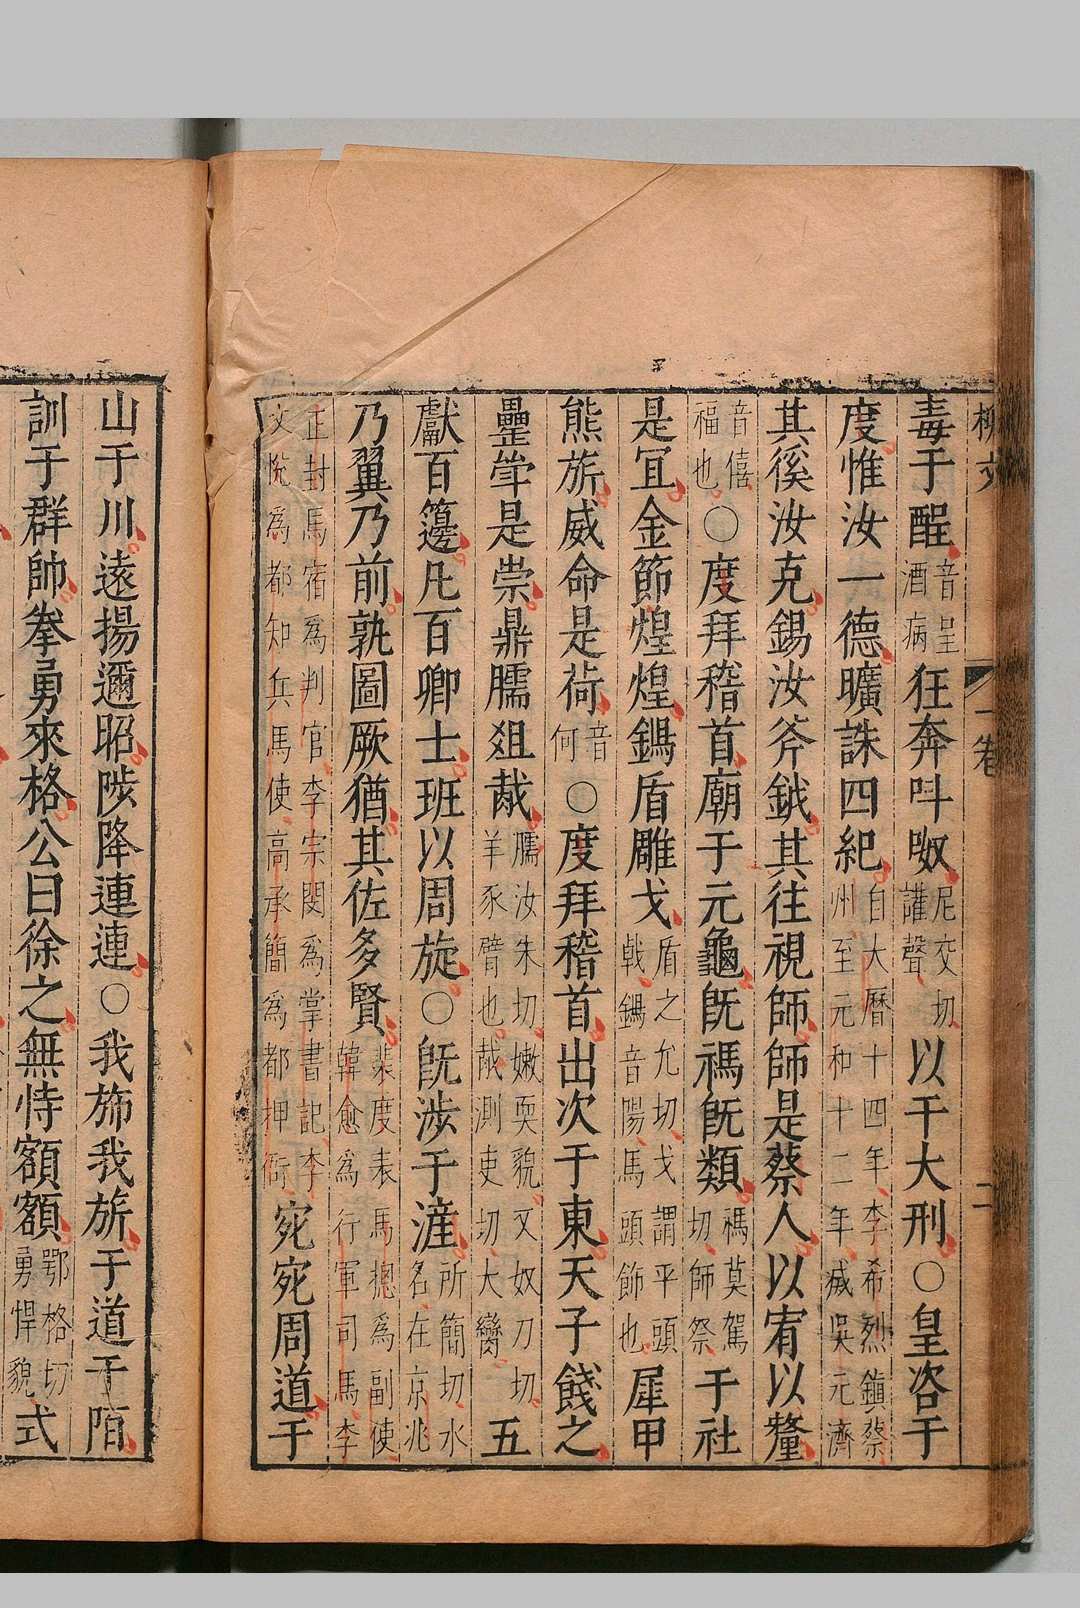 柳文 一卷 二
毒于酲音呈酒病狂奔呌呶尼交切讙聲以干大刑○皇咨于
度惟汝一德曠誅四紀自大曆十四年李希烈鎮蔡州至元和十二年滅吳元濟
其徯汝克錫汝斧鉞其往視師師是蔡人以宥以釐
音僖福也○度拜稽首廟于元龜旣禡旣類禡莫駕切師祭于社
是宜金節煌煌錫盾雕戈盾之允切戈謂平頭戟鍚音陽馬頭飾也犀甲
熊旂威命是荷音何○度拜稽首出次于東天子餞之
罍斝是崇鼎臑俎胾臑汝朱切嫩耎貌又奴刀切羊豕臂也胾測吏切大臠五
獻百籩凡百卿士班以周旋○旣涉于滻所簡切水名在京兆
乃翼乃前孰圖厥猶其佐多賢裴度表馬摠為副使韓愈為行軍司馬李
正封馬宿為判官李宗閔為掌書記李文悅為都知兵馬使高承簡為都押衙宛宛周道于
山于川遠揚邇昭陟降連連○我斾我旂于道于陌
訓于群帥拳勇來格公曰徐之無恃額額鄂格切勇悍貌式